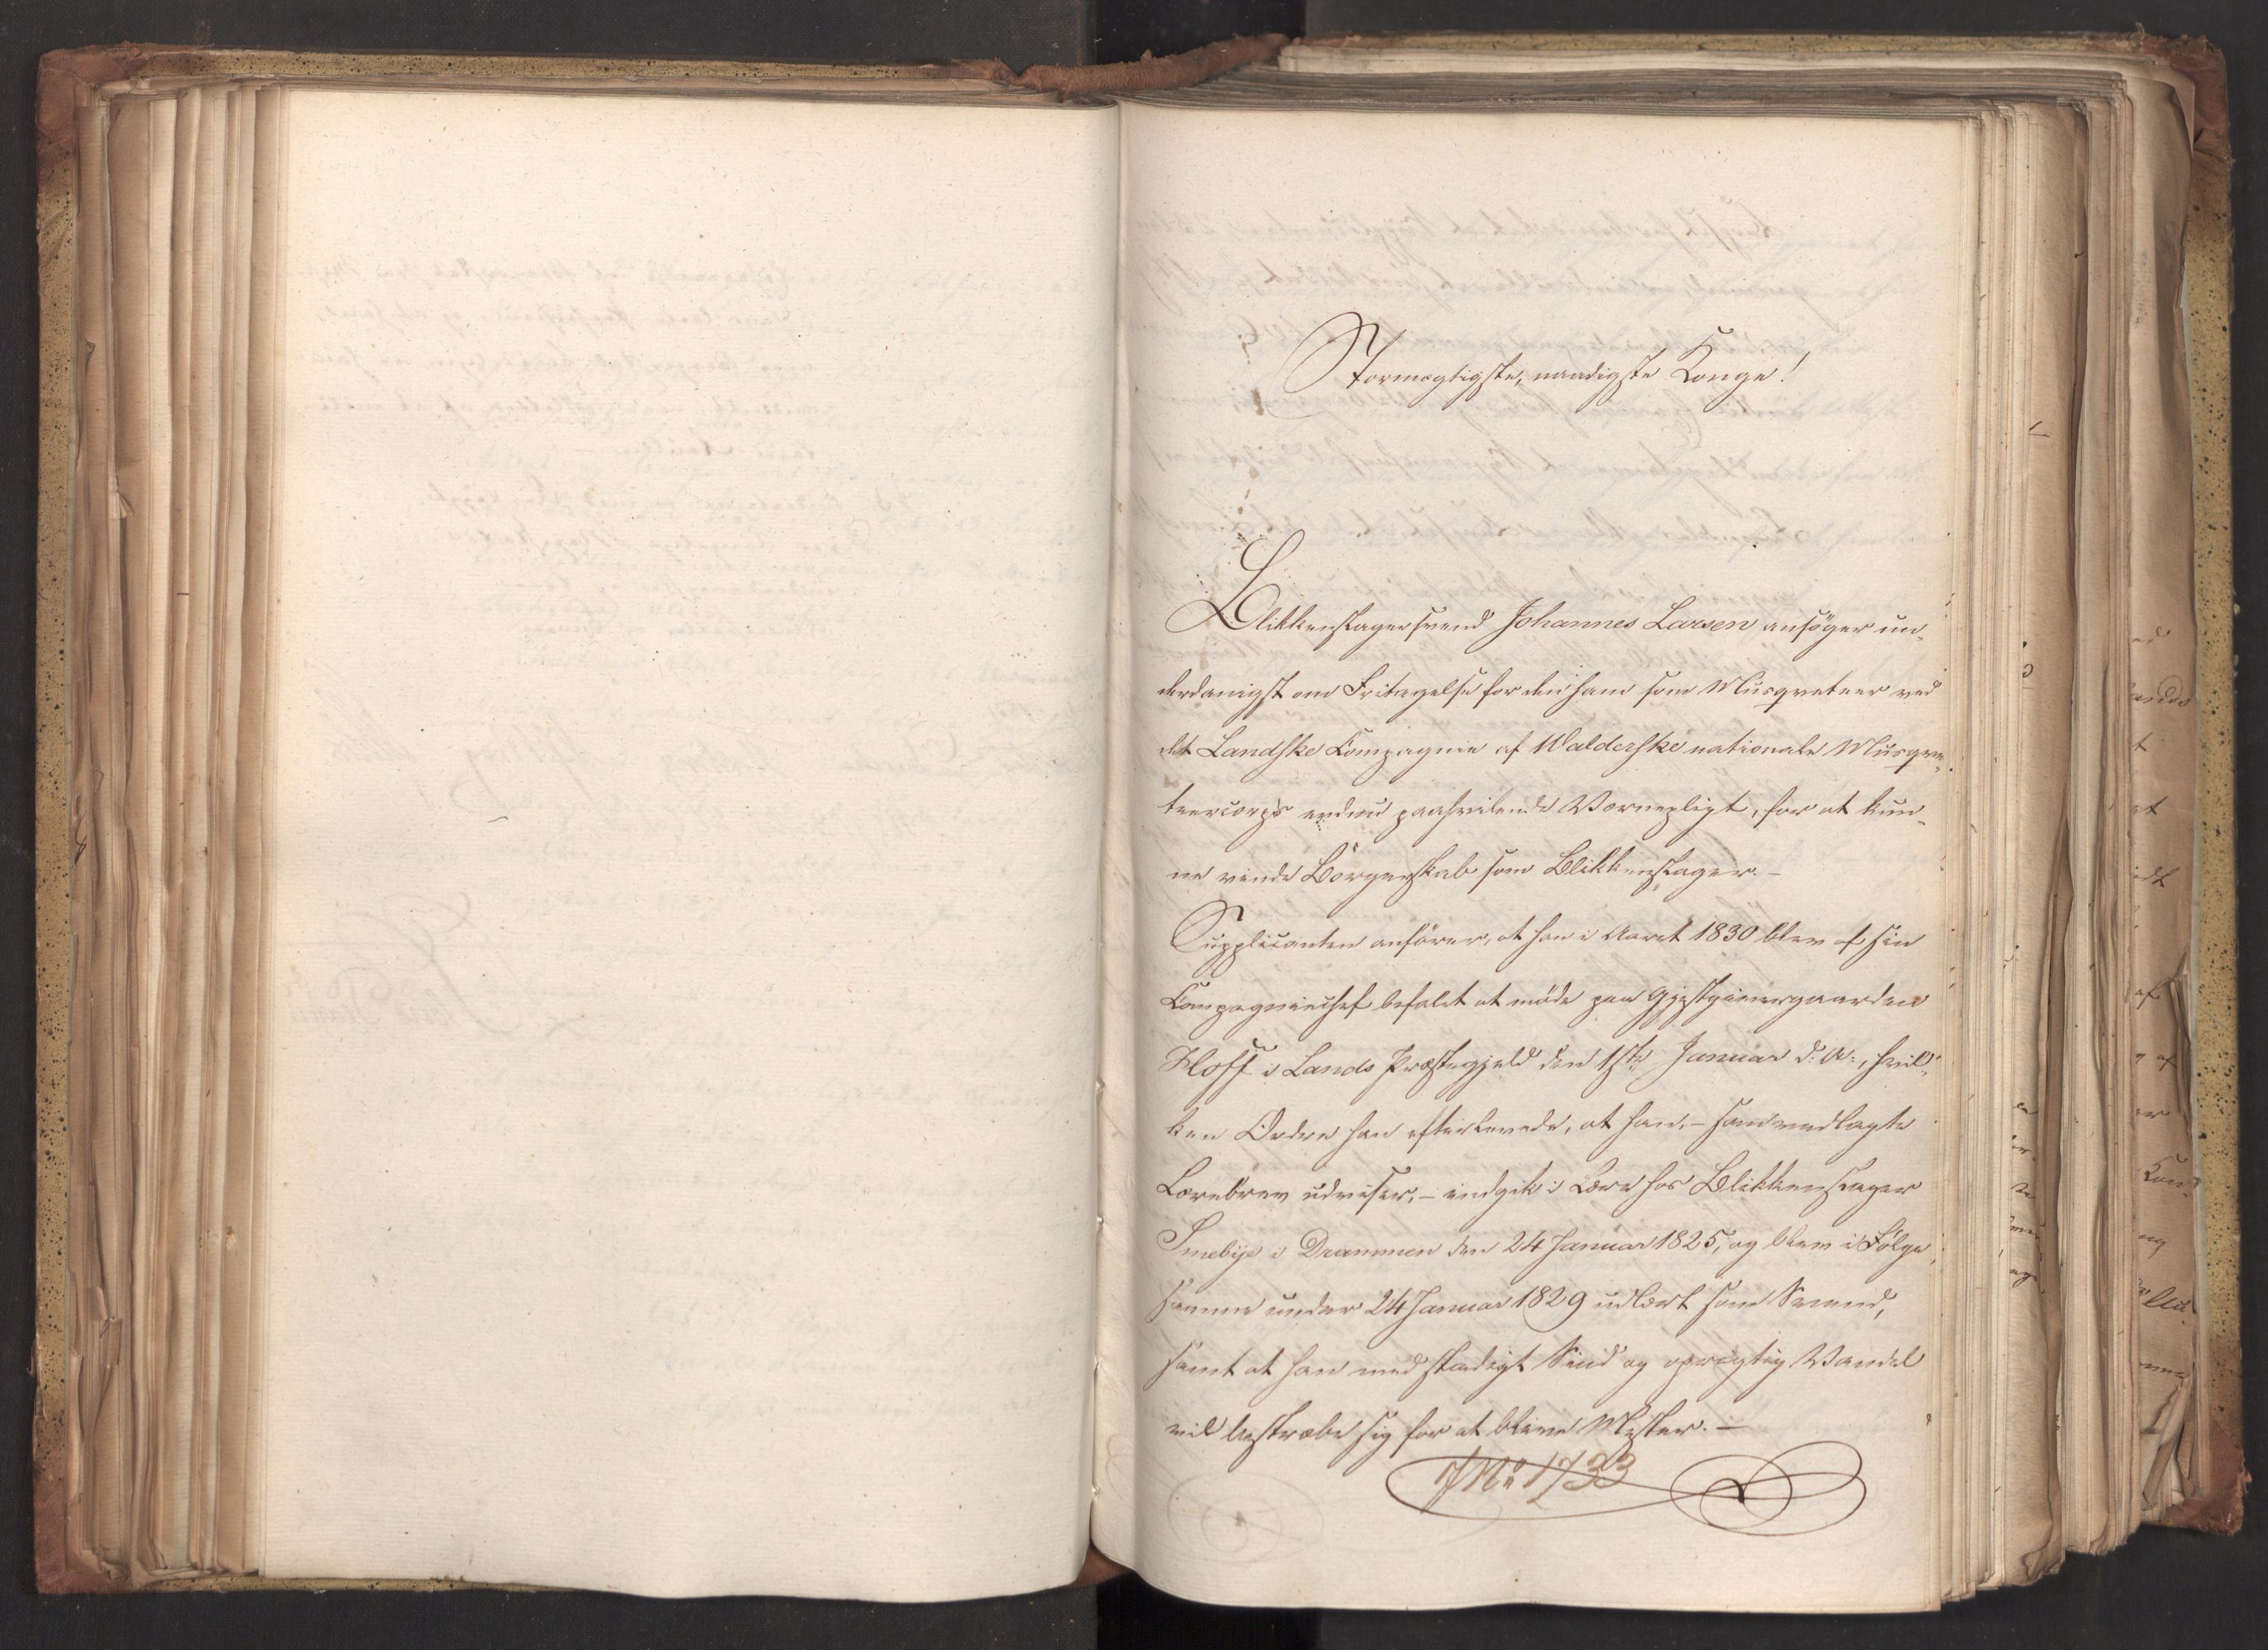 Stormægtigste, naadigste Konge!
Blikkenslagersvend Johannes Larsen ansöger un-
derdanigst om Fritagelse for den ham som Musqveteer ved
det Landske Compagnie af Walderske nationale Musqve-
teercorps endnu paahvilende Værnepligt, for at kun-
ne vinde Börgerskab som Blikkenslager. -
Supplicanten anförer, at han i Aaret 1830 blev af sin
Compagniechef befalet at möde paa Gjestgivergaarden
Hoff i Lands Præstegjeld den 1ste Januar d: A:, hvil-
ken Ordre han efterlevede, at han, - som vedlagte
Lærebrev udviser, - indgik i Lære hos Blikkenslager
Smebÿe i Drammen den 24 Januar 1825, og blev i Fölge
samme under 24 Januar 1829 udlært som Svend,
samt at han med stadigt Sind og oprigtig Vandel
vil bestræbe sig for at blive Mester. -
No 1733